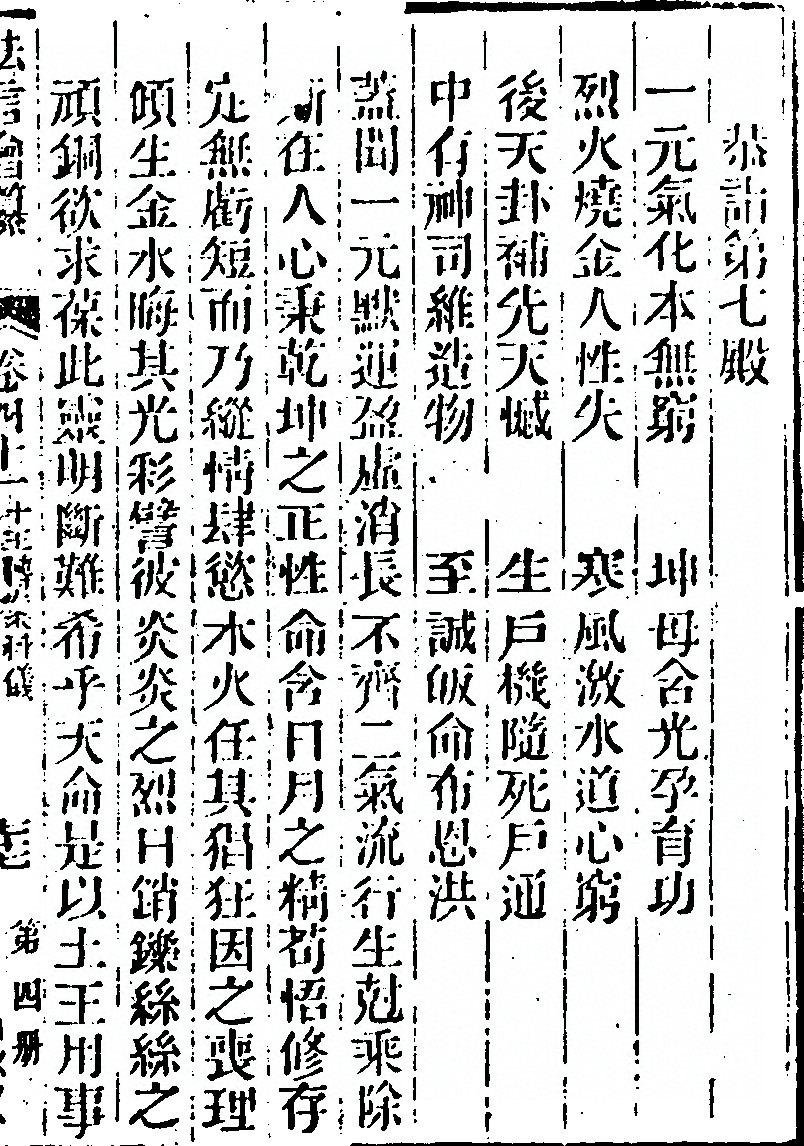 恭詣第七殿
一元氣化本無窮　坤母含光孕育功
烈火燒金人性失　寒風激水道心窮
後天卦補先天憾　生戶機隨死戶通
中有神司維造物　至誠皈命布恩洪
蓋聞一元默運盈虛消長不齊二氣流行生尅乘除
斯在人心秉乾坤之正性命含日月之精苟悟修存
定無虧短而乃縱情肆慾木火任其猖狂因之喪理
傾生金水晦其光彩譬彼炎炎之烈日銷鑠絲絲之
頑銅欲求葆此靈明斷難希乎天命是以土王用事
法言會纂　卷四十一　十王轉案科儀
第四册